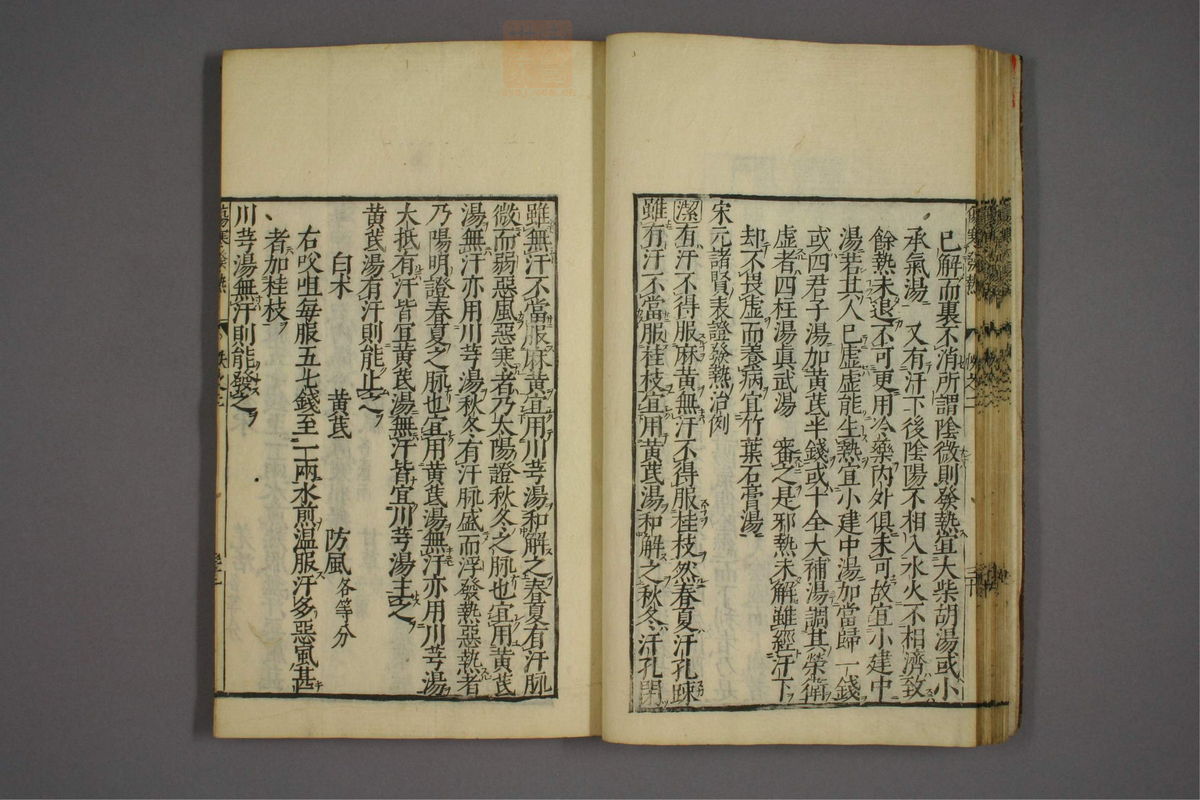 已解而裏不消所謂陰微則發熱宜大柴胡湯或小
承氣湯　又有汗下後陰陽不相入水火不相濟致
餘熱未退不可更用冷藥內外俱未可故宜小建中
湯若其人已虛虛能生熱宜小建中湯加當歸一錢
或四君子湯加黃芪半錢或十全大補湯調其榮衛
虛者四柱湯眞武湯　審之是邪熱未解雖經汗下
却不畏虛而養病宜竹葉石膏湯
宋元諸賢表證發熱治例
潔有汗不得服麻黃無汗不得服桂枝然春夏汗孔踈
雖有汗不當服桂枝宜用黃芪湯和解之秋冬汗孔閉
雖無汗不當服麻黃宜用川芎湯和解之春夏有汗脉
微而弱惡風惡寒者乃太陽證秋冬之脉也宜用黃芪
湯無汗亦用川芎湯秋冬有汗脉盛而浮發熱惡熱者
乃陽明證春夏之脉也宜用黃芪湯無汗亦用川芎湯
大抵有汗皆宜黃芪湯無汗皆宜川芎湯主之
黃芪湯有汗則能止之
白术　黃芪　防風各等分
右㕮咀每服五七錢至一二兩水煎温服汗多惡風甚
者加桂枝
川芎湯無汗則能發之